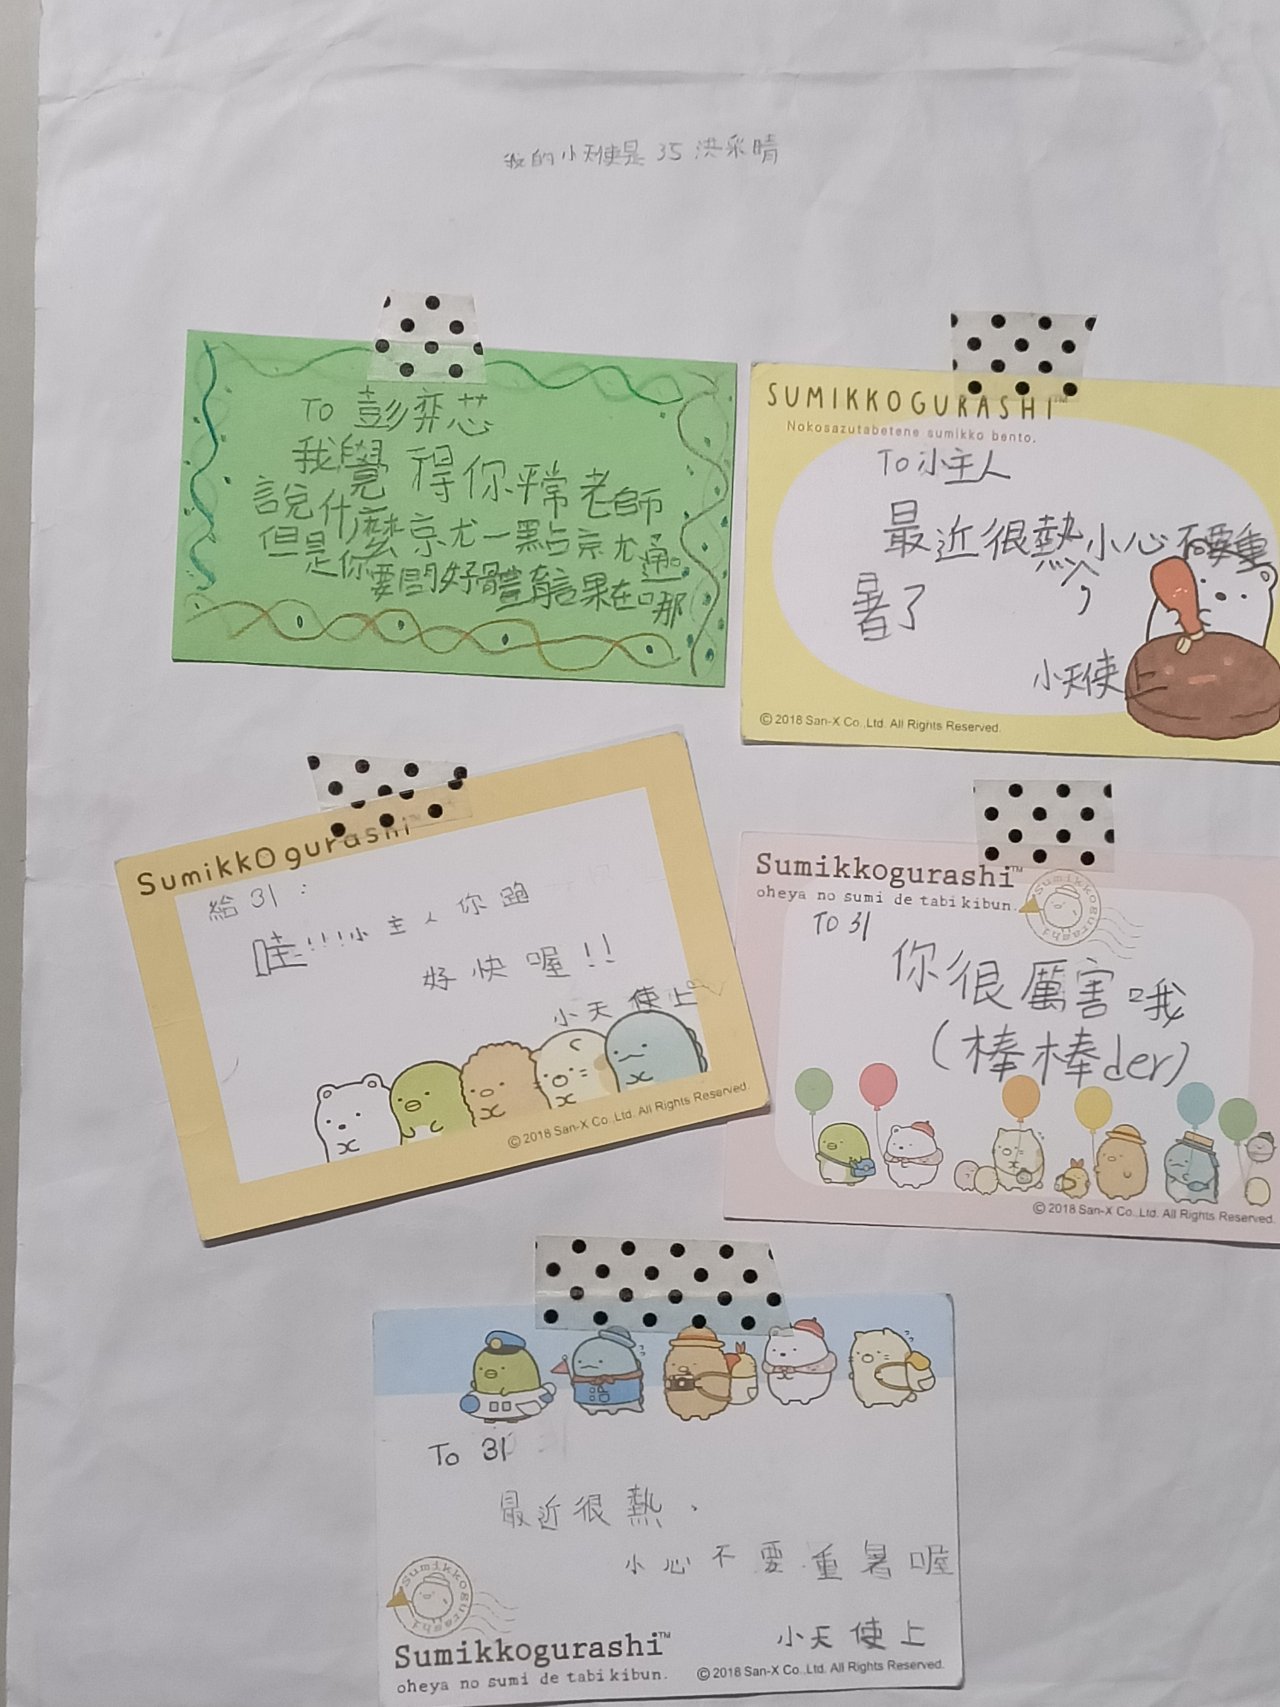 我的小天使是 35 洪采晴
To 彭弈芯
我覺得你平常老師
說什麼京尤一點京尤通。
但是你要問好體育課在哪
SUMIKKOGURASHI™
Nokosazutabetene sumikko bento.
To 小主人
最近很熱,小心不要重
暑了
小天使上
© 2018 San-X Co.,Ltd. All Rights Reserved.
Sumikkogurashi™
給31:
哇!!!小主人你跑
好快喔!!
小天使上
© 2018 San-X Co.,Ltd. All Rights Reserved.
Sumikkogurashi™
oheya no sumi de tabi kibun.
Sumikkogurashi
TO 31
你很厲害哦
(棒棒der)
© 2018 San-X Co.,Ltd. All Rights Reserved.
To 31
最近很熱、
小心不要重暑喔
小天使上
Sumikkogurashi
Sumikkogurashi™
oheya no sumi de tabi kibun.
© 2018 San-X Co.,Ltd. All Rights Reserved.